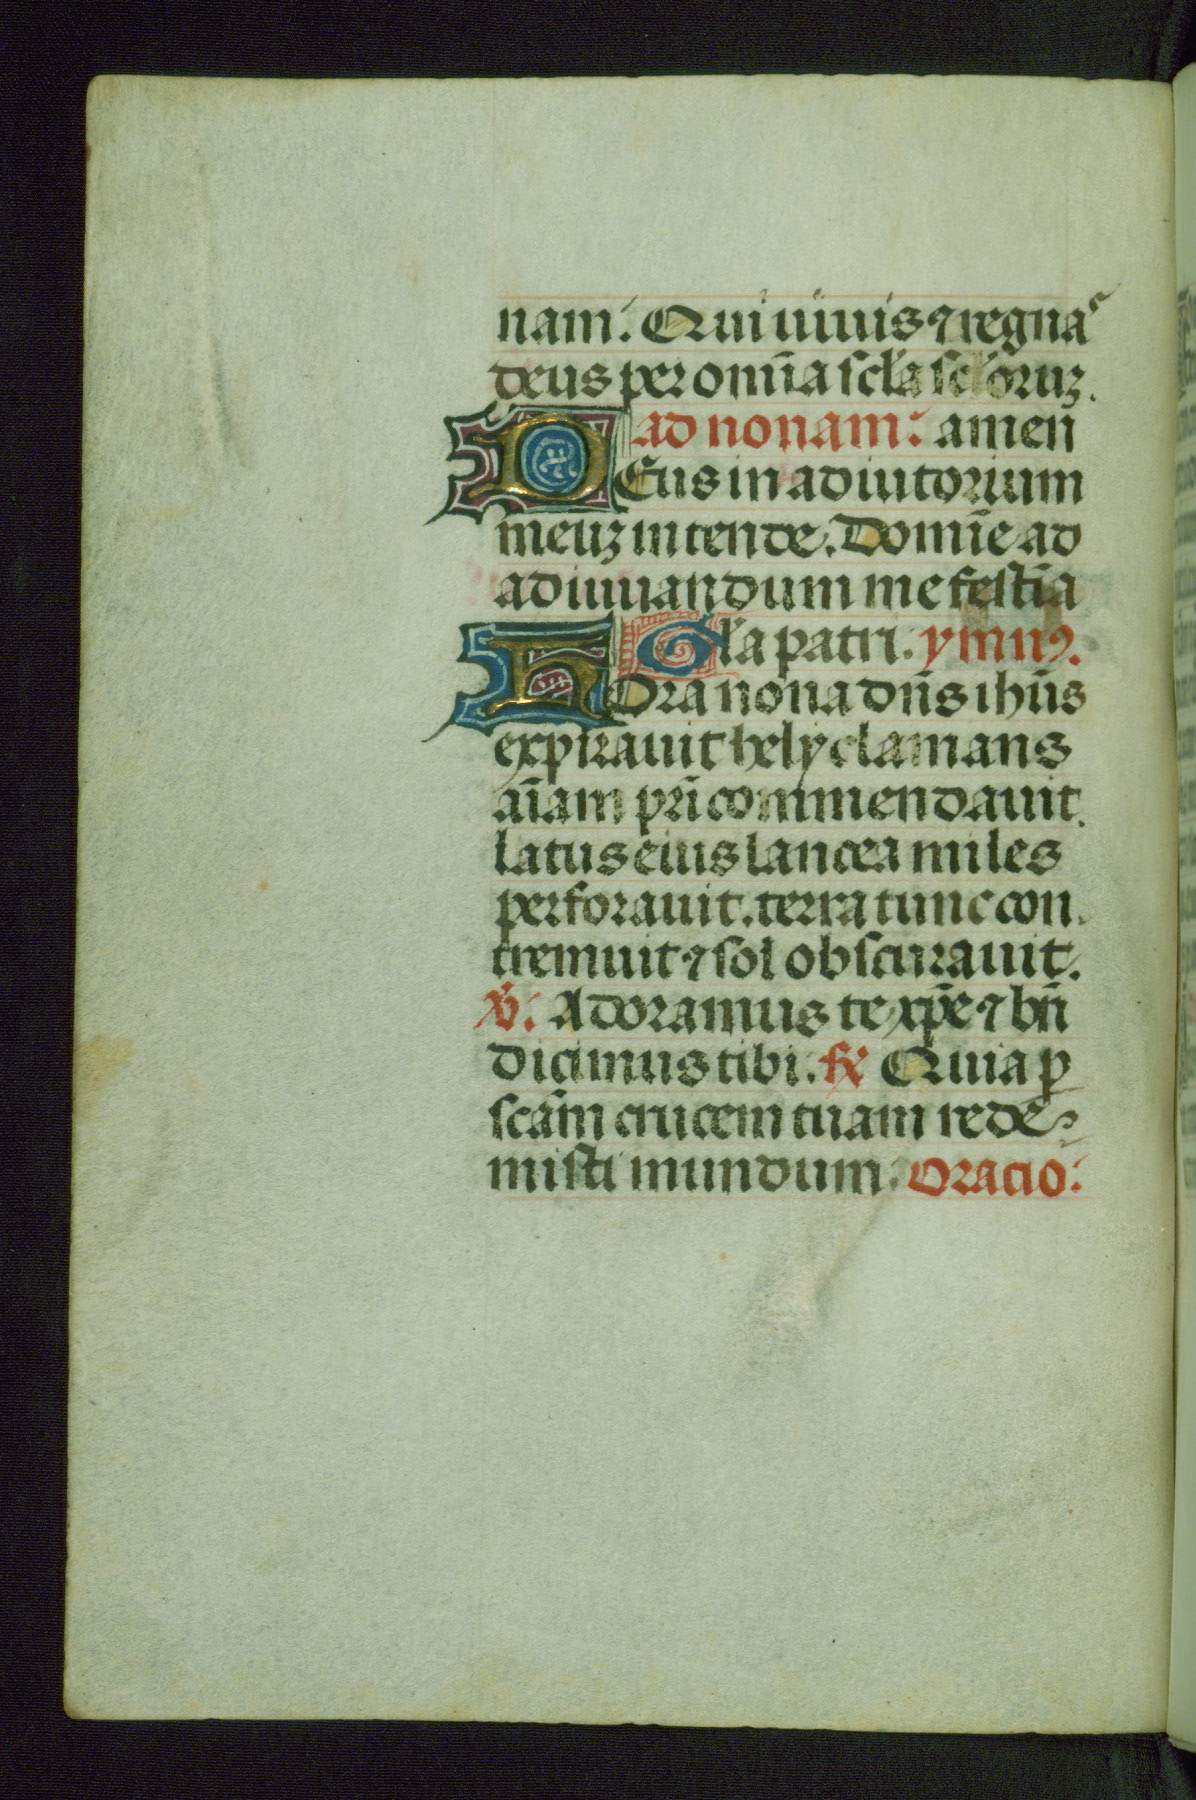 nam. Qui uiuis ⁊ regnas
deus per om̄ia scl̓a scl̓oruꝫ.
ad nonam: amen
DEus in adiutorium
meuꝫ intende. Domīe ad
adiuuandum me festīa
Gl̓a patri. ymnꝰ.
hOra nona dn̄s ihūs
expirauit hely clamans
aīam pr̄i commendauit.
latus eius lancea miles
perforauit. terra tunc con
tremuit ⁊ sol obscurauit.
v̓. Adoramus te xp̄e ⁊ bn̄
dicimus tibi. ꝶ Quia ꝑ
scām crucem tuam rede
misti mundum. Oracio: